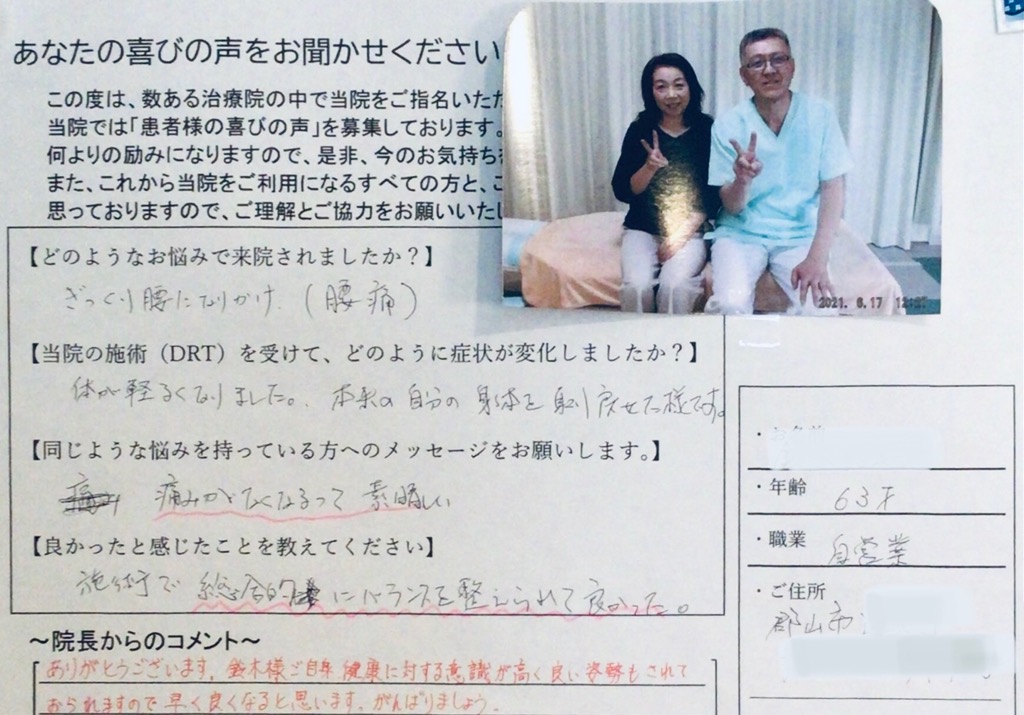 あなたの喜びの声をお聞かせください
この度は、数ある治療院の中で当院をご指名いただ
当院では「患者様の喜びの声」を募集しております。
何よりの励みになりますので、是非、今のお気持ちを
また、これから当院をご利用になるすべての方と、こ
思っておりますので、ご理解とご協力をお願いいたし
2021. 6.17
【どのようなお悩みで来院されましたか？】
ぎっくり腰になりかけ （腰痛）
【当院の施術（DRT）を受けて、どのように症状が変化しましたか？】
体が軽るくなりました。本来の自分の身体を取り戻せた様です。
【同じような悩みを持っている方へのメッセージをお願いします。】
痛みがなくなるって素晴しい
【良かったと感じたことを教えてください】
施術で総合的にバランスを整えられて良かった。
・年齢 63才
・職業 自営業
・ご住所
郡山市
～院長からのコメント～
ありがとうございます。鈴木様ご自身健康に対する意識が高く良い姿勢もされて
おられますので早く良くなると思います。がんばりましょう。